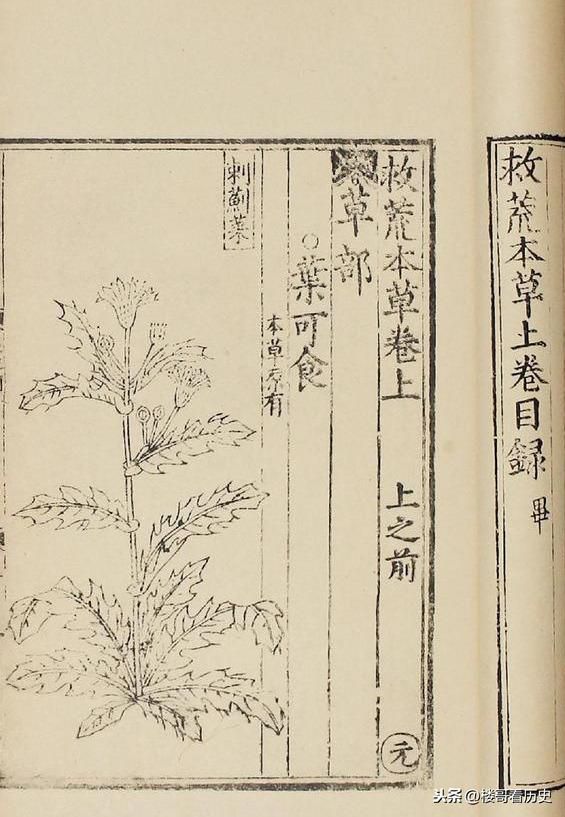 救荒本草上卷目録 畢
救荒本草卷上 上之前
草部
○葉可食
本草原有
刺薊菜
元
头条 @楼哥看历史